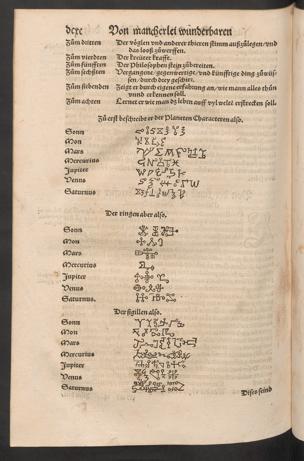 dcxc Von mancherlei wunderbaren
Fům dritten Der vöglen vnd anderer thieren stimm außzůlegen/vnd
das looß zůwerffen.
Fům vierdten Der kreüter krafft.
Fům fünfften Der Philosophen stein zůbereiten.
Fům sechßten Vergangene/gegenwertige/vnd künfftige ding zůwüs-
sen/durch drey geschirr.
Fům sibenden Zeigt er durch eigene erfahrung an/wie mann alles thůn
vnnd erkennen soll.
Fům achten Lernet er wie man dz leben auff vyl welet erstrecken soll.
Fů erst beschreibt er der Planeten Characteren also.
Sonn
Mon
Mars
Mercurius
Jupiter
Venus
Saturnus
Der ringen aber also.
Sonn
Mon
Mars
Mercurius
Jupiter
Venus
Saturnus.
Der sigillen also.
Sonn
Mon
Mars
Mercurius
Jupiter
Venus
Saturnus
Dises seind